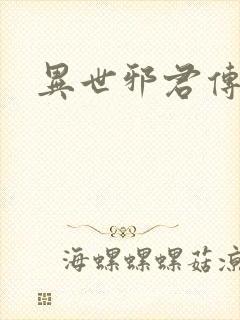 異世邪君傳
海螺螺螺菇涼